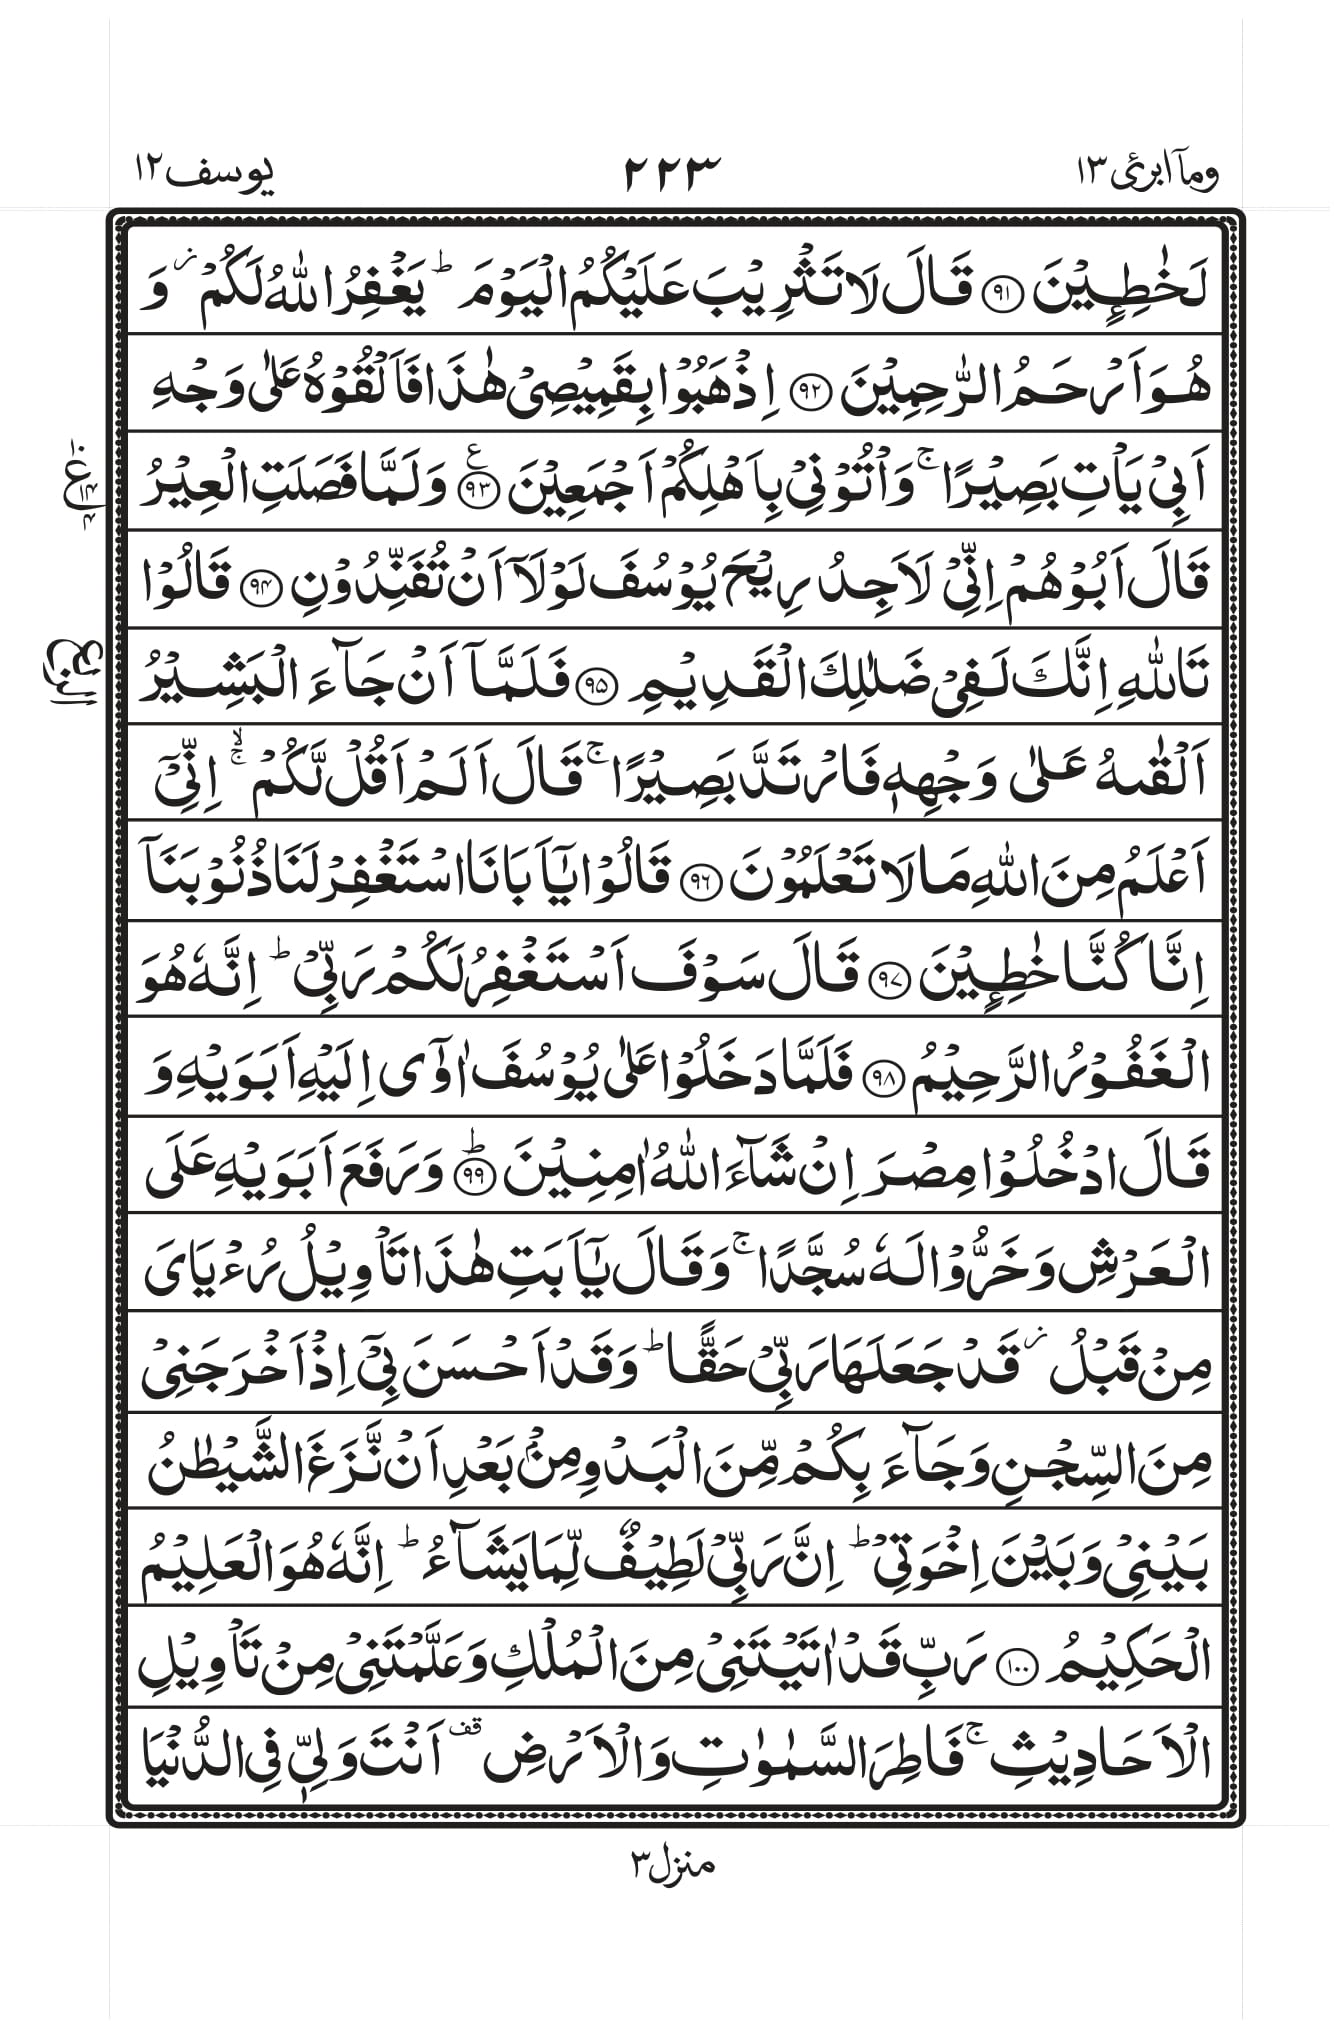 ومآ ابرئ ١٣ ٢٢٣ يوسف ١٢
لَخٰطِـِٕيْنَ ﴿٩١﴾ قَالَ لَا تَثْرِيْبَ عَلَيْكُمُ الْيَوْمَ ؕ يَغْفِرُ اللّٰهُ لَكُمْ ؗ وَ
هُوَ اَرْحَمُ الرّٰحِمِيْنَ ﴿٩٢﴾ اِذْهَبُوْا بِقَمِيْصِيْ هٰذَا فَاَلْقُوْهُ عَلٰى وَجْهِ
اَبِيْ يَاْتِ بَصِيْرًا ۚ وَاْتُوْنِيْ بِاَهْلِكُمْ اَجْمَعِيْنَ ﴿٩٣﴾ ع وَلَمَّا فَصَلَتِ الْعِيْرُ
ع ١٠ ١٤ ٤
قَالَ اَبُوْهُمْ اِنِّيْ لَاَجِدُ رِيْحَ يُوْسُفَ لَوْلَاۤ اَنْ تُفَنِّدُوْنِ ﴿٩٤﴾ قَالُوْا
تَاللّٰهِ اِنَّكَ لَفِيْ ضَلٰلِكَ الْقَدِيْمِ ﴿٩٥﴾ فَلَمَّاۤ اَنْ جَآءَ الْبَشِيْرُ
اَلْقٰىهُ عَلٰى وَجْهِهٖ فَارْتَدَّ بَصِيْرًا ۚ قَالَ اَلَمْ اَقُلْ لَّكُمْ ۙۚ اِنِّيْۤ
اَعْلَمُ مِنَ اللّٰهِ مَا لَا تَعْلَمُوْنَ ﴿٩٦﴾ قَالُوْا يٰۤاَبَانَا اسْتَغْفِرْ لَنَا ذُنُوْبَنَاۤ
اِنَّا كُنَّا خٰطِـِٕيْنَ ﴿٩٧﴾ قَالَ سَوْفَ اَسْتَغْفِرُ لَكُمْ رَبِّيْ ؕ اِنَّهٗ هُوَ
الْغَفُوْرُ الرَّحِيْمُ ﴿٩٨﴾ فَلَمَّا دَخَلُوْا عَلٰى يُوْسُفَ اٰوٰۤى اِلَيْهِ اَبَوَيْهِ وَ
قَالَ ادْخُلُوْا مِصْرَ اِنْ شَآءَ اللّٰهُ اٰمِنِيْنَ ﴿٩٩﴾ؕ وَرَفَعَ اَبَوَيْهِ عَلَى
الْعَرْشِ وَخَرُّوْا لَهٗ سُجَّدًا ۚ وَقَالَ يٰۤاَبَتِ هٰذَا تَاْوِيْلُ رُءْيَايَ
مِنْ قَبْلُ ؗ قَدْ جَعَلَهَا رَبِّيْ حَقًّا ؕ وَقَدْ اَحْسَنَ بِيْۤ اِذْ اَخْرَجَنِيْ
مِنَ السِّجْنِ وَجَآءَ بِكُمْ مِّنَ الْبَدْوِ مِنْۢ بَعْدِ اَنْ نَّزَغَ الشَّيْطٰنُ
بَيْنِيْ وَبَيْنَ اِخْوَتِيْ ؕ اِنَّ رَبِّيْ لَطِيْفٌ لِّمَا يَشَآءُ ؕ اِنَّهٗ هُوَ الْعَلِيْمُ
الْحَكِيْمُ ﴿١٠٠﴾ رَبِّ قَدْ اٰتَيْتَنِيْ مِنَ الْمُلْكِ وَعَلَّمْتَنِيْ مِنْ تَاْوِيْلِ
الْاَحَادِيْثِ ۚ فَاطِرَ السَّمٰوٰتِ وَالْاَرْضِ ۫ قف اَنْتَ وَلِيّٖ فِي الدُّنْيَا
منزل ٣